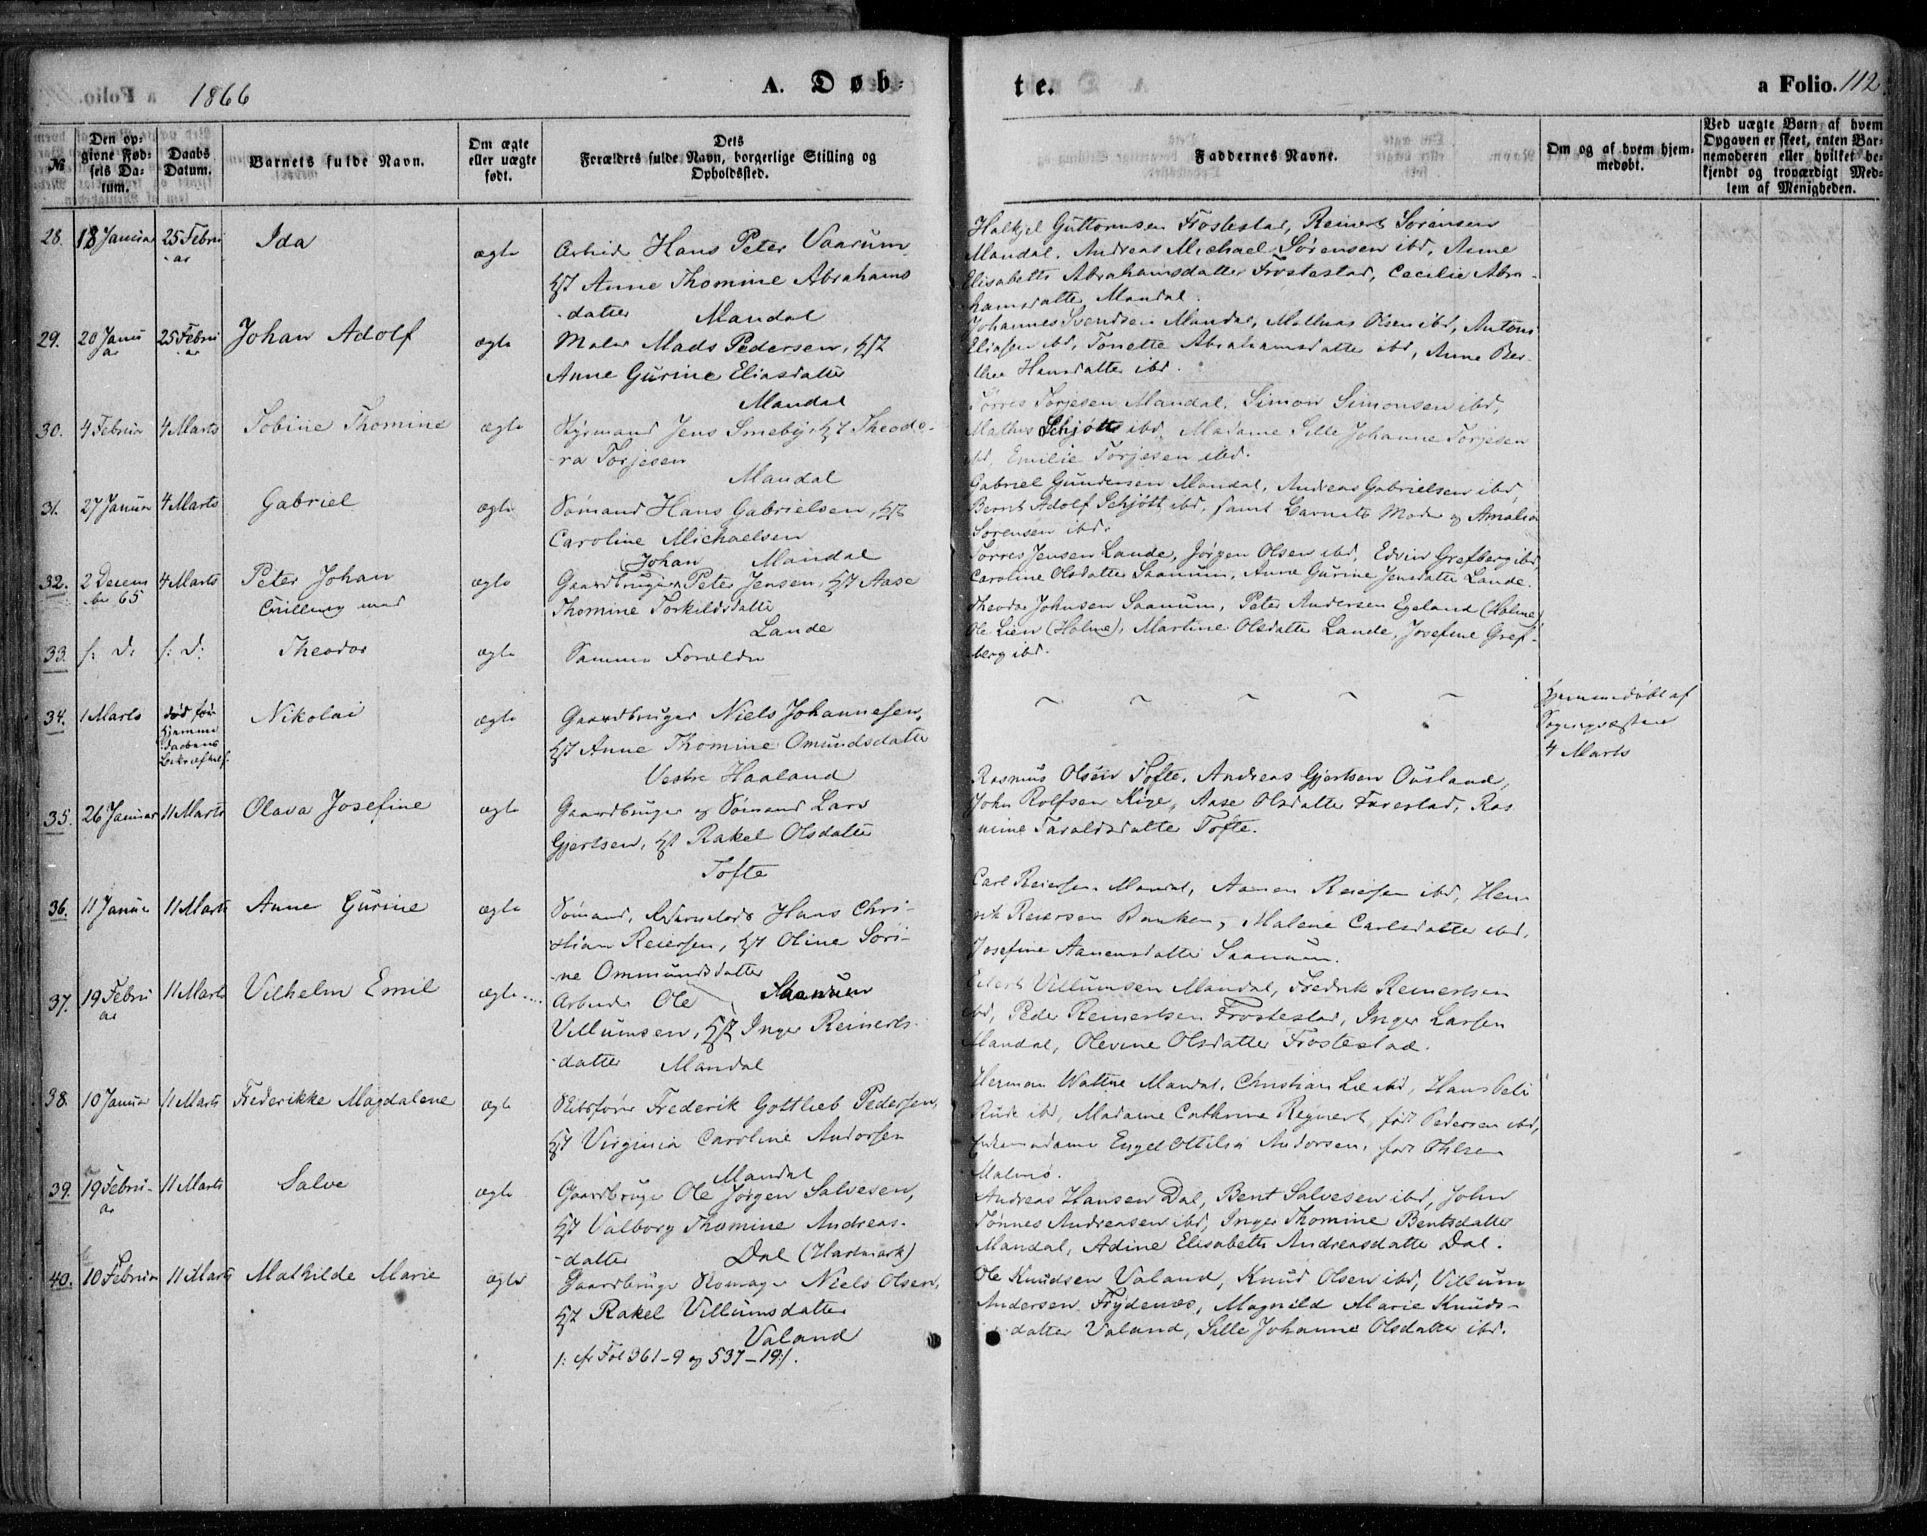 1866
A. Døb-
te.
a Folio. 112
№
Den op-
givne Fød-
sels Da-
tum.
Daabs
Datum.
Barnets fulde Navn.
Om ægte
eller uægte
født.
Dets
Forældres fulde Navn, borgerlige Stilling og
Opholdssted.
Faddernes Navne.
Om og af hvem hjem-
medøbt.
Ved uægte Børn af hvem
Opgaven er skeet, enten Bar-
nemoderen eller hvilket be-
kjendt og troværdigt Med-
lem af Menigheden.
28. 18 Januar 25 Febru
ar
Ida
ægte
Arbeider Hans Peter Vaarum
Hst Anne Thomine Abrahams
-datter Mandal
Halkjel Guttormsen Frostestad, Reinert Sørensen
Mandal, Andreas Michael Sørensen ibd, Anne
Elisabeth Abrahamsdatter Frostestad, Cecilie Abra-
hamsdatter Mandal.
29. 20 Janu
ar
25 Febru
ar
Johan Adolf
ægte
Maler Mads Pedersen, Hst
Anne Gurine Eliasdatter
Mandal
Johannes Svendsen Mandal, Mathias Olsen ibd, Antoni
Eliasen ibd, Tonette Abrahamsdatter ibd, Anne Ber-
thea Hansdatter ibd.
30. 4 Februar 4 Marts
Tobine Thomine
ægte
Styrmand Jens Smeby, Hst Theodo-
-ra Torjesen
Mandal
Tørres Torjesen Mandal, Simon Simonsen ibd,
Mathis Schjøtt ibd, Madame Sille Johanne Torjesen
ibd, Emilie Torjesen ibd.
31. 27 Januar 4 Marts
Gabriel
ægte
Sømand Hans Gabrielsen, Hst
Caroline Michaelsen
Mandal
Gabriel Gundersen Mandal, Andreas Gabrielsen ibd,
Bernt Adolf Schjøtt ibd, samt Barnets Moder og Amalia
Sørensen ibd.
32. 2 Decem
ber 65
4 Marts
Peter Johan
Tvilling med
ægte
Johan
Gaardbruger Peter Jensen, Hst Aase
Thomine Torkildsdatter
Lande
Tørres Jensen Lande, Jørgen Olsen ibd, Edvin Grefberg ibd
Caroline Olsdatter Saanum, Anne Gurine Jensdatter Lande.
33. s: D: s: D:
Theodor
ægte
Samme Forældre
Theodor Johnsen Saanum, Peter Andersen Egeland (Holme)
Ole Lien (Holme), Martine Olsdatter Lande, Josefine Gref-
berg ibd.
34. 1 Marts
død før
Hjemme
daabens
Bekræftelse
Nikolai
ægte
Gaardbruger Niels Johannesen,
Hst Anne Thomine Omundsdatter
Vestre Haaland
Hjemmedøbt af
Sognepræsten
4 Marts
35. 26 Januar 11 Marts
Olava Josefine
ægte
Gaardbruger og Sømand Lars
Gjertsen, Hst Rakel Olsdatter
Tofte
Rasmus Olsen Tofte, Andreas Gjertsen Ousland,
John Rolfsen Kige, Aase Olsdatter Farestad, Ras
mine Taraldsdatter Tofte.
36. 11 Januar 11 Marts
Anne Gurine
ægte
Sømand, Hans Chri-
stian Reiersen, Hst Oline Sori-
-ne Ommundsdatter
Saanum
Carl Reiersen Mandal, Aanen Reiersen ibd, Hen
rik Reiersen Banken, Malene Carlsdatter ibd,
Josefine Aanensdatter Saanum.
37. 19 Febru
ar
11 Marts
Vilhelm Emil
ægte
Arbeider Ole
Villumsen, Hst Inger Reinerts-
-datter Mandal
Eilert Villumsen Mandal, Fredrik Reinertsen
ibd, Peder Reinertsen Frostestad, Inger Larsen
Mandal, Olevine Olsdatter Frostestad.
38. 10 Januar 11 Marts
Frederikke Magdalene
ægte
Skibsfører Frederik Gottlieb Pedersen,
Hst Virginia Caroline Andorsen
Mandal
Herman Wattne Mandal, Christian Lie ibd, Hans
Rude ibd, Madame Cathrine Regnert, født Pedersen ibd,
Enkemadame Engel Ottilia Andorsen, født Ohlsen
Malmø.
39. 19 Febru-
ar
11 Marts
Salve
ægte
Gaardbruger Ole Jørgen Salvesen,
Hst Valborg Thomine Andreas-
-datter Dal (Hartmark)
Andreas Hansen Dal, Bent Salvesen ibd, John
Tønnes Andreasen ibd, Inger Thomine Bentsdatter
Mandal, Adine Elisabeth Andreasdatter Dal.
40. 10 Februar 11 Marts
Mathilde Marie
ægte
Gaardbruger Skomager Niels Olsen,
Hst Rakel Villumsdatter
Valand
/: cfr Fol 361-9 og 537-19:/.
Ole Knudsen Valand, Knud Olsen ibd, Villum
Andersen Frydenæs, Magnild Marie Knuds-
datter Valand, Sille Johanne Olsdatter ibd.